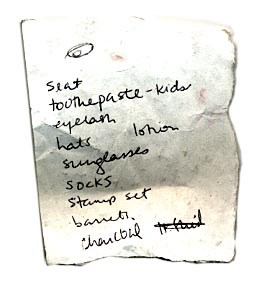 seat
toothepaste - kids
eyelash
hats lotion
sunglasses
socks
stamp set
charcoal